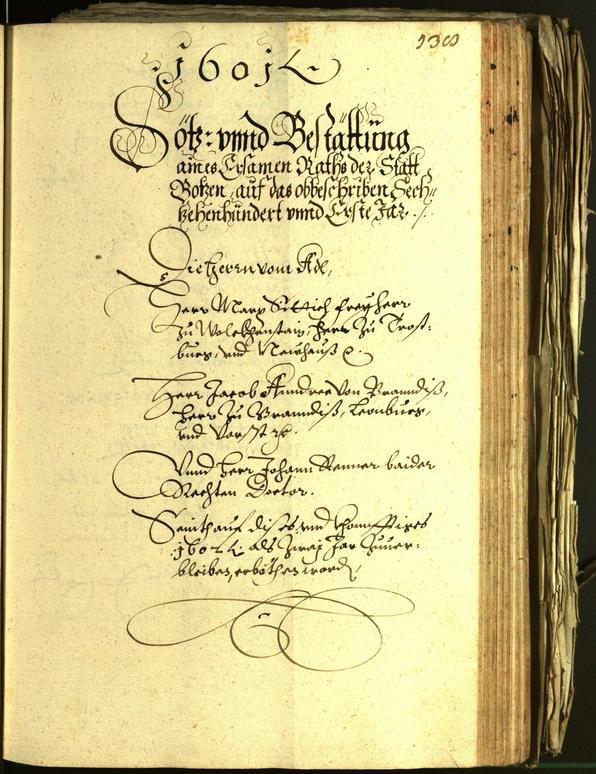 1601
Sötz: vnnd Bestättüng
aines Ersamen Raths der Statt
Botzen, auf das obbeschriben Sech=
zehenhündert vnnd Erste Jar ./.
Die Herrn vom Adl,
Herr Marx Sittich Freyherr
zu Wolckhenstain, Herr zu Trost=
burg, vnd Newhauß
Herr Jacob Anndree von Branndiß,
Herr zu Branndiß, Leonburg,
vnd Vorst
Vnnd Herr Johann Renner baider
Rechten Doctor.
Seinth auf dises vnd khonfftiges
als zway Jar zuuer=
bleiben, erböthen word,